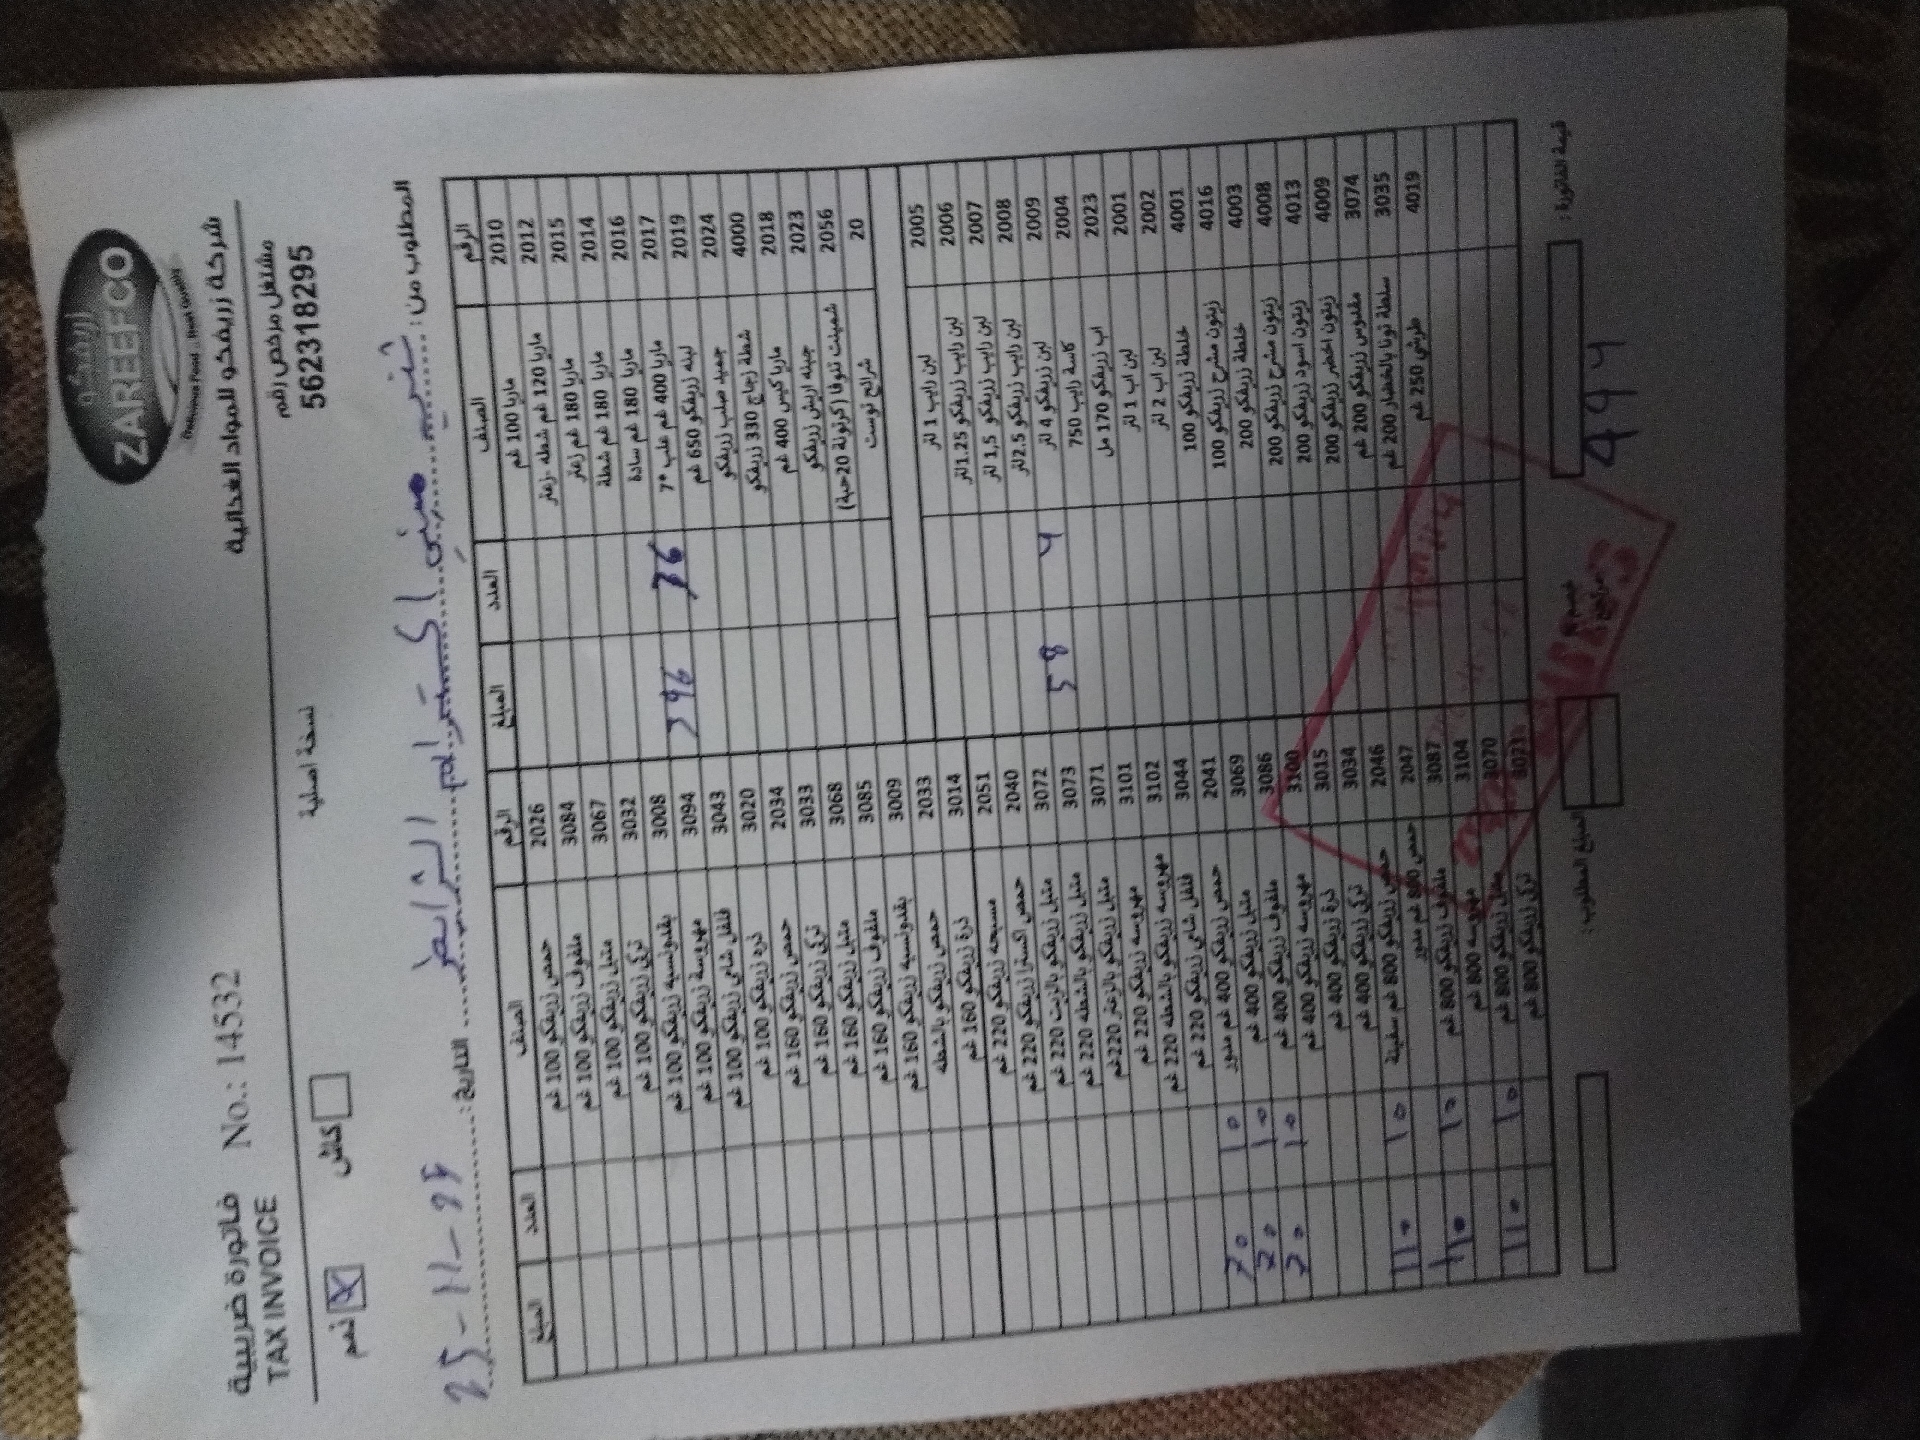 زريفكو
ZAREEFCO
شركة زريفكو للمواد الغذائية
مشتغل مرخص رقم
562318295
فاتورة ضريبية No.: 14532
TAX INVOICE
نسخة اصلية
كاش
ذمم
المطلوب من :
التاريخ: 25-11-
الرقم الصنف العدد المبلغ
2010 ماريا 100 غم
2012 ماريا 120 غم شطه -زعتر
2015 ماريا 180 غم زعتر
2014 ماريا 180 غم شطة
2016 ماريا 180 غم سادة
2017 ماريا 400 غم علب *7
2019 لبنه زريفكو 650 غم
2024 جميد صلب زريفكو
4000 شطة زجاج 330 زريفكو
2018 ماريا كيس 400 غم
2023 جبنه اريش زريفكو
2056 شمينت تنوفا (كرتونة 20حبة)
20 شرائح توست
2005 لبن رايب 1 لتر
2006 لبن رايب زريفكو 1.25لتر
2007 لبن رايب زريفكو 1,5 لتر
2008 لبن رايب زريفكو 2.5لتر
2009 لبن زريفكو 4 لتر
2004 كاسة رايب 750
2023 اب زريفكو 170 مل
2001 لبن اب 1 لتر
2002 لبن اب 2 لتر
4001 خلطة زريفكو 100
4016 زيتون مشرح زريفكو 100
4003 خلطة زريفكو 200
4008 زيتون مشرح زريفكو 200
4013 زيتون اسود زريفكو 200
4009 زيتون اخضر زريفكو 200
3074 مقدوس زريفكو 200 غم
3035 سلطة تونا بالخضار 200 غم
4019 طرشي 250 غم
الرقم الصنف العدد المبلغ
2026 حمص زريفكو 100 غم
3084 ملفوف زريفكو 100 غم
3067 متبل زريفكو 100 غم
3032 تركي زريفكو 100 غم
3008 بقدونسيه زريفكو 100 غم
3094 مهروسة زريفكو 100 غم
3043 فلفل شامي زريفكو 100 غم
3020 ذره زريفكو 100 غم
2034 حمص زريفكو 160 غم
3033 تركي زريفكو 160 غم
3068 متبل زريفكو 160 غم
3085 ملفوف زريفكو 160 غم
3009 بقدونسيه زريفكو 160 غم
2033 حمص زريفكو بالشطه
3014 ذرة زريفكو 160 غم
2051 مسبحه زريفكو 220 غم
2040 حمص اكسترا زريفكو 220 غم
3072 متبل زريفكو بالزيت 220 غم
3073 متبل زريفكو بالشطه 220 غم
3071 متبل زريفكو بالزعتر 220 غم
3101 مهروسه زريفكو 220 غم
3102 مهروسه زريفكو بالشطه 220 غم
3044 فلفل شامي زريفكو 220 غم
2041 حمص زريفكو 400 غم مدور
3069 متبل زريفكو 400 غم 10 70
3086 ملفوف زريفكو 400 غم 10 70
3100 مهروسه زريفكو 400 غم 10 70
3015 ذرة زريفكو 400 غم
3034 تركي زريفكو 400 غم
2046 حمص زريفكو 800 غم سفينة 10 110
2047 حمص 800 غم مدور
3087 ملفوف زريفكو 800 غم 10 110
3104 مهروسه 800 غم
3070 متبل زريفكو 800 غم 10 110
3021 تركي زريفكو 800 غم
قيمة الفاتورة :
المبلغ المطلوب :